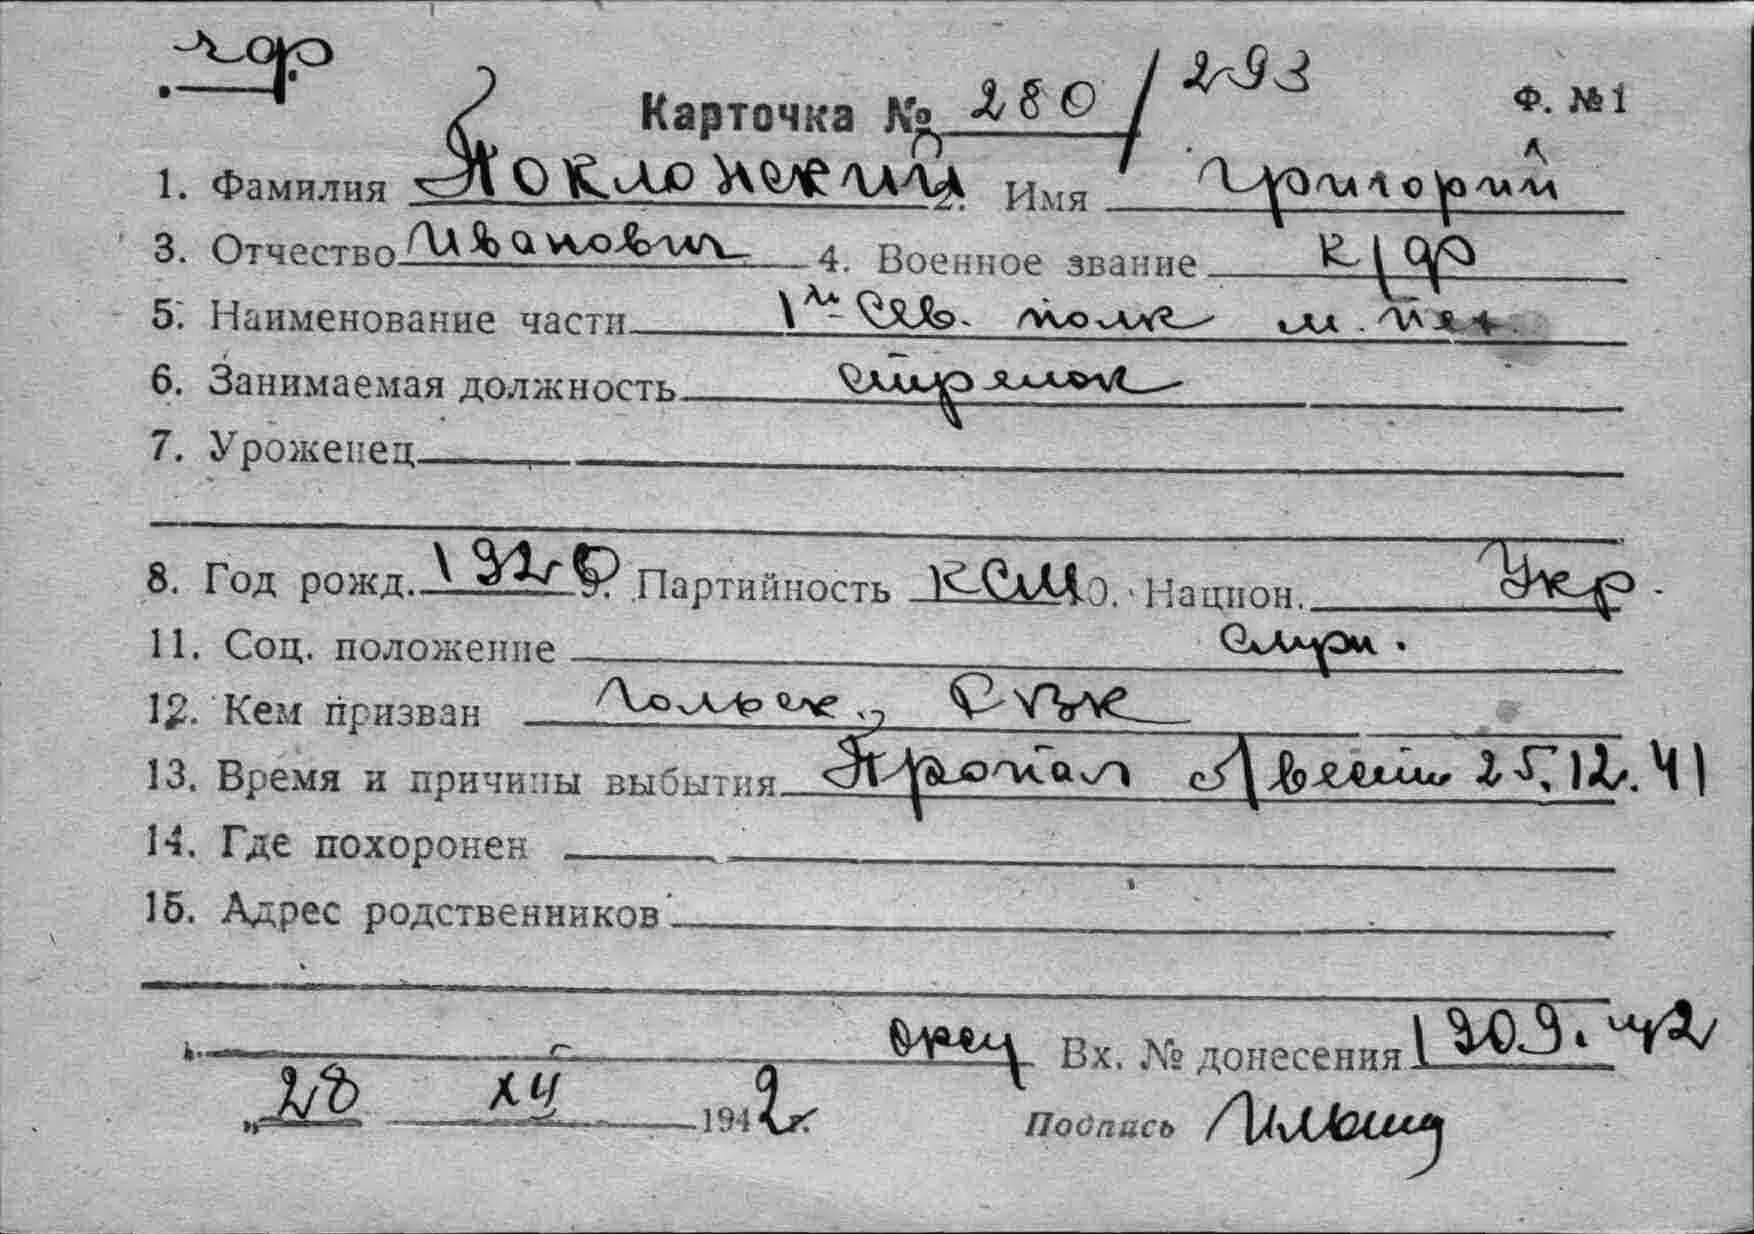 чф
Карточка № 280/293 Ф. №1
1. Фамилия Поклонский 2. Имя Григорий
3. Отчество Иванович 4. Военное звание к/ф
5. Наименование части 1й Сев. полк м. пех.
6. Занимаемая должность стрелок
7. Уроженец
8. Год рожд. 1920 9. Партийность КСМ 10. Национ. Укр.
11. Соц. положение служ.
12. Кем призван РВК
13. Время и причины выбытия Пропал б/вести 25.12.41
14. Где похоронен
15. Адрес родственников
Вх. № донесения 1909.
„28 XII 1942г.
Подпись Ильина